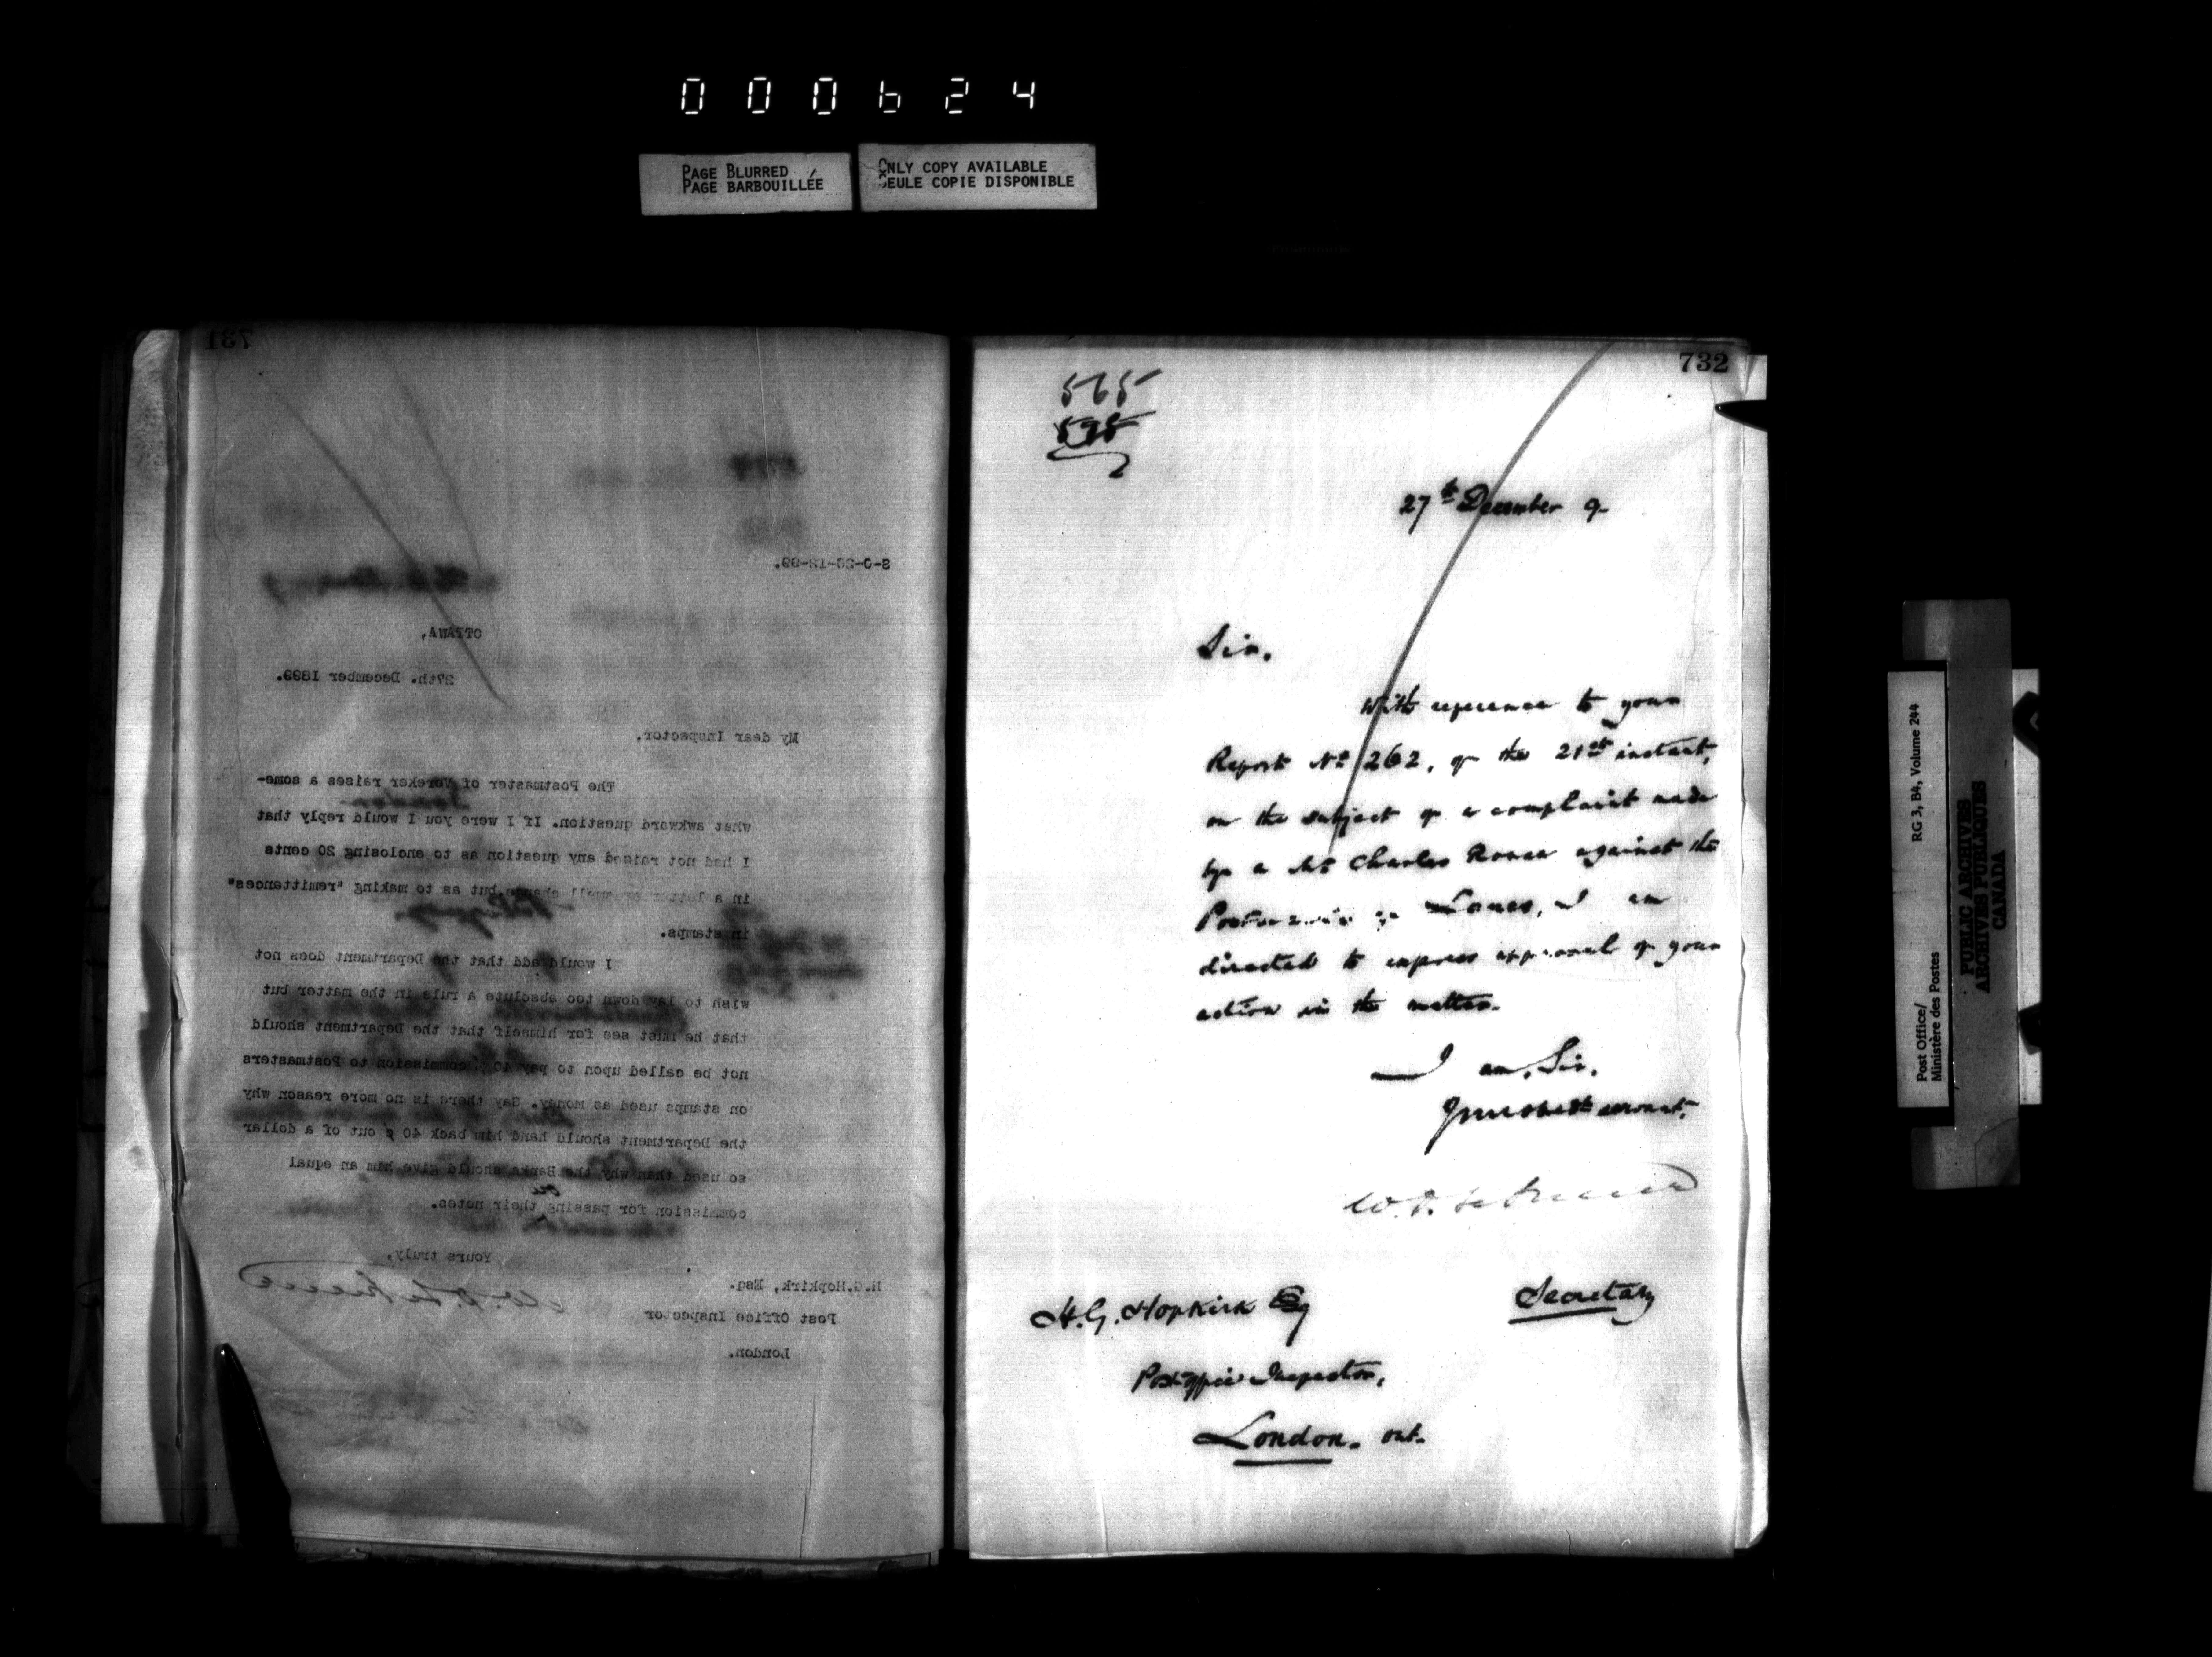 000624
PAGE BLURRED
PAGE BARBOUILLÉE
ONLY COPY AVAILABLE
SEULE COPIE DISPONIBLE
731
S-O-26-12-99.
OTTAWA,
27th. December 1899.
My dear Inspector,
The Postmaster of Vereker raises a some-
what awkward question. If I were you I would reply that
I had not raised any question as to enclosing 20 cents
in a letter small change but as to making "remittances"
in stamps.
I would add that the Department does not
wish to lay down too absolute a rule in the matter but
that he must see for himself that the Department should
not be called upon to pay 40 % commission to Postmasters
on stamps used as money. Say there is no more reason why
the Department should hand him back 40 ¢ out of a dollar
so used than why the Banks should give him an equal
commission for passing on their notes.
Yours truly,
H.G.Hopkirk, Esq.
Post Office Inspector
London.
732
565
595
27th December 9-
Sir,
With reference to your
Report No 262, of the 21st instant,
on the subject of a complaint made
by a Mr Charles against the
Postmaster of I am
directed to express approval of your
action in the matter.
I am, Sir,
Your obedt servant,
Secretary
H.G. Hopkirk Esq
Post Office Inspector,
London. Ont.
Post Office/
Ministère des Postes
RG 3, B4, Volume 244
PUBLIC ARCHIVES
ARCHIVES PUBLIQUES
CANADA